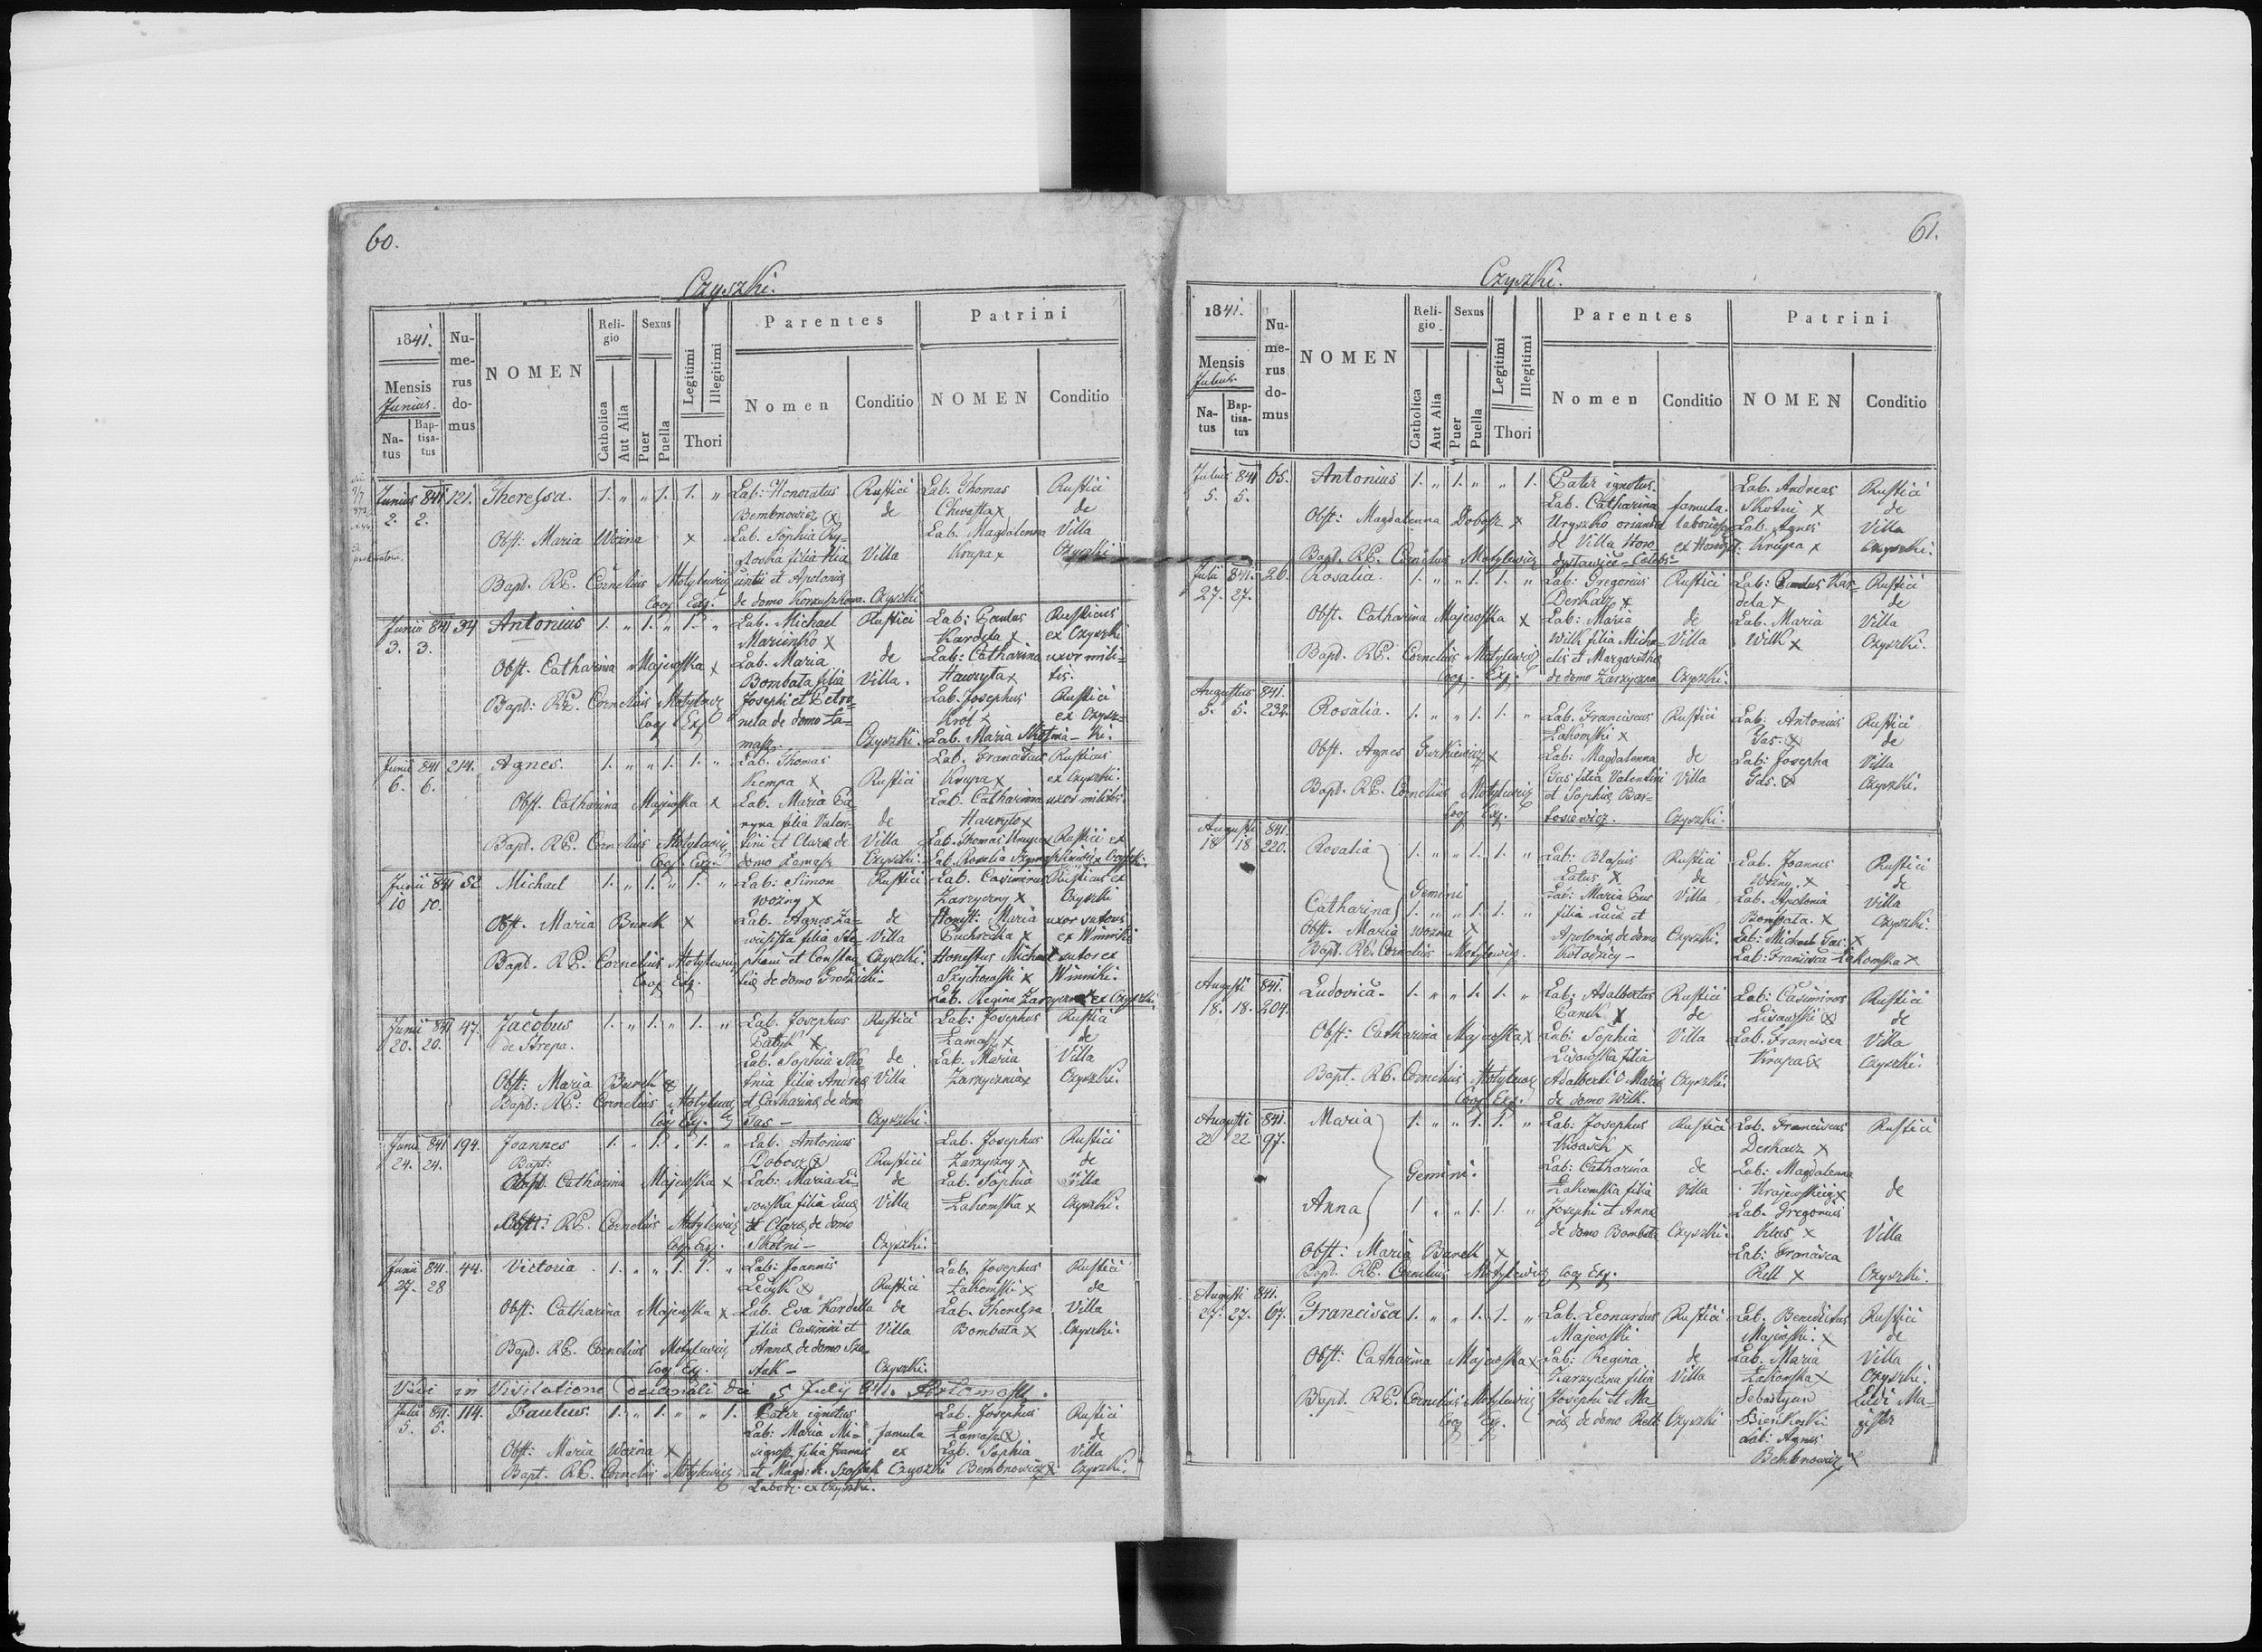 60.
Czyszki.
1841.
Numerus domus
NOMEN
Religio
Sexus
Legitimi
Illegitimi
Parentes
Patrini
Mensis
Junius.
Natus
Baptisatus
Catholica
Aut Alia
Puer
Puella
Thori
Nomen
Conditio
NOMEN
Conditio
Junius 841 121. Theressa. 1. " " 1. 1. " Lab: Honoratus Rustici Lab. Thomas Rustici
2. 2. Bembnowicz x de Chwasta x de
Obst: Maria Woźna x Lab. Sophia Lab. Magdalenna Villa
filia Villa Krupa x Czyszki
Bapt. RP. Cornelius Motylewicz et Apolonis
Coop Exp. de domo Czyszki
Junii 841 34 Antonius 1. " 1. " 1. " Lab. Michael Rustici Lab: Paulus Rusticus
3. 3. Marienko x Kardyla x ex Czyszki
Obst. Catharina Majewska x Lab. Maria de Lab: Catharina uxor mili-
Bombata filia Villa. Hawryta x tis.
Bapt: RP. Cornelius Motylewicz Josephi et Petro- Lab. Josephus Rustici
Coop Exp nela de domo Ła- Krol x ex Czysz-
masz. Czyszki. Lab. Maria Skotnia - ki.
Junii 841 214. Agnes. 1. " " 1. 1. " Lab. Thomas Lab. Franciscus Rusticus
6. 6. Kempa x Rustici Krupa x ex Czyszki.
Obst. Catharina Majewska x Lab. Maria Lab. Catharinna uxor militis.
filia Valen- de Hawryto x
Bapd. RP. Cornelius Motylewicz tini et Clara de Villa Lab. Thomas Rustici ex
Coop Exp. domo Łamasz Czyszki. Lab. Rosalia Czyszki.
Junii 841 52 Michael 1. " 1. " 1. " Lab: Simon Rustici Lab. Casimirus Rusticus ex
10 10. Woźny x Zarzyczny x Czyszki
Obst. Maria Burek x Lab. Agnes de Honest: Maria uxor sutoris
filia Ste- Villa x ex Winniki
Bapd. RP. Cornelius Motylewicz phani et Czyszki. Honestus Michael sutor ex
Coop Exp. de domo x Winniki.
Lab. Regina ex Czyszki.
Junii 841 47. Jacobus 1. " 1. " 1. " Lab. Josephus Rustici Lab: Josephus Rustici
20. 20. de Strepa. x Łamasz x de
Lab. Sophia Sko- de Lab. Maria Villa
Obst: Maria Burek x tnia filia Andrea Villa Zarzycznia x Czyszki.
Bapt: RP: Cornelius Motylewicz et Catharina de domo
Coop Exp. Gas - Czyszki.
Junii 841 194. Joannes 1. " 1. " 1. " Lab. Antonius Lab. Josephus Rustici
24. 24. Bapt: Dobosz x Rustici Zarzyczny x de
Obst. Catharina Majewska x Lab: Maria Li- de Lab. Sophia Villa
sowska filia Villa Łakomska x Czyszki.
RP. Cornelius Motylewicz et Clara de domo
Coop Exp. Skotni - Czyszki.
Junii 841. 44. Victoria 1. " " 1. 1. " Lab: Joannis Lab. Josephus Rustici
27. 28 x Rustici Łakomski x de
Obst: Catharina Majewska x Lab. Eva Kardella de Lab. Theressa Villa
filia Casimiri et Villa Bombata x Czyszki.
Bapd. RP. Cornelius Motylewicz Annes de domo
Coop Exp. Czyszki.
Vidi in Visitatione Decanali die 5 July 841.
Julii 841. 114. Paulus. 1. " 1. " " 1. Pater ignotus Lab. Josephus Rustici
5. 5. Lab: Maria famula Łamasz x de
Obst: Maria Woźna x filia Joannis ex Lab. Sophia Villa
Bapt. RP. Cornelius Motylewicz et Magd: Czyszki Bembnowicz x Czyszki.
ex Czyszki.
61.
Czyszki.
1841.
Numerus domus
NOMEN
Religio
Sexus
Legitimi
Illegitimi
Parentes
Patrini
Mensis
Julius.
Natus
Baptisatus
Catholica
Aut Alia
Puer
Puella
Thori
Nomen
Conditio
NOMEN
Conditio
Julius 841 65. Antonius 1. " 1. " " 1. Pater ignotus. Lab. Andreas Rustici
5. 5. Lab. Catharina famula. Skotni x de
Obst: Magdalenna Dobosz x Uryszko orianda Lab. Agnes Villa
de Villa Horo- Krupa x Czyszki.
Bapd. RP. Cornelius Motylewicz
Julii 841. 26. Rosalia. 1. " " 1. 1. " Lab: Gregorius Rustici Lab: Paulus Kar- Rustici
27. 27. Derkacz x dela x de
Obst. Catharina Majewska x Lab: Maria de Lab. Maria Villa
Wilk filia Micha- Villa Wilk x Czyszki.
Bapd. RP. Cornelius Motylewicz elis et Margaritha
Coop. Exp. de domo Zarzyczna Czyszki.
Augustus 841.
5. 5. 232. Rosalia. 1. " " 1. 1. " Lab. Franciscus Rustici Lab: Antonius Rustici
Łakomski x Gas. x de
Obst. Agnes x Lab: Magdalenna de Lab: Josepha Villa
Gas filia Valentini Villa Gas. x Czyszki.
Bapd. RP. Cornelius Motylewicz et Sophia Bar-
Coop Exp. tosiewicz. Czyszki.
Augusti 841.
18 18 220. Rosalia 1. " " 1. 1. " Lab: Blasius Rustici Lab. Joannes Rustici
x de Woźny. x de
Gemini Lab: Maria Villa Lab. Apolonia Villa
Catharina 1. " " 1. 1. " filia et Bombata. x Czyszki.
Obst. Maria Woźna x Apolonia de domo Czyszki. Lab: Michael Gas. x
Bapd. RP. Cornelius Motylewicz. Kołodziey - Lab: Francisca Łakomska x
Augusti 841. Ludovica. 1. " " 1. 1. " Lab: Adalbertus Rustici Lab: Casimirus Rustici
18. 18. 204. x de Lisowski x de
Obst: Catharina Majewska x Lab: Sophia Villa Lab. Francisca Villa
Lisowska filia Krupa x Czyszki.
Bapt. RP. Cornelius Motylewicz Adalberti & Maria Czyszki.
Coop Exp. de domo Wilk.
Augusti 841. Maria 1. " " 1. 1. " Lab: Josephus Rustici Lab. Franciscus Rustici
22 22 97. x Derkacz x
Gemini. Lab: Catharina de Lab: Magdalenna
Łakomska filia Villa x de
Anna 1 " " 1. 1. " Josephi et Anna Lab. Gregorius
de domo Bombata Czyszki. Klus x Villa
Obst: Maria Burek x Lab: Francisca
Bapd. RP. Cornelius Motylewicz Coop Exp. Rell x Czyszki.
Augusti 841.
27. 27. 67. Francisca 1. " " 1. 1. " Lab. Leonardus Rustici Lab. Benedictus Rustici
Majewski Majewski. x de
Obst: Catharina Majewska x Lab: Regina de Lab. Maria Villa
Zarzyczna filia Villa Łakomska x Czyszki.
Bapd. RP. Cornelius Motylewicz Josephi et Ma- Sebastyan Ludi Ma-
Coop Exp. ria de domo Rell Czyszki gister
Lab: Agnes
Bembnowicz x